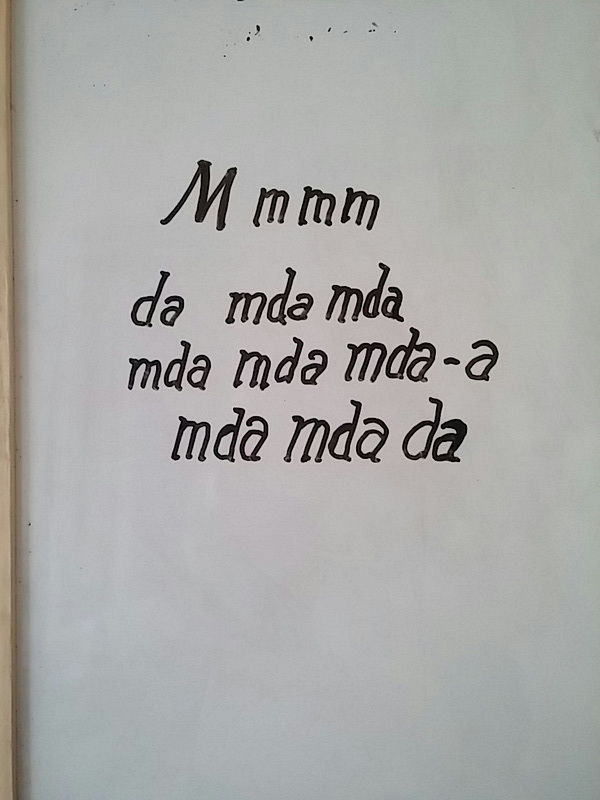 M mmm
da mda mda
mda mda mda-a
mda mda da